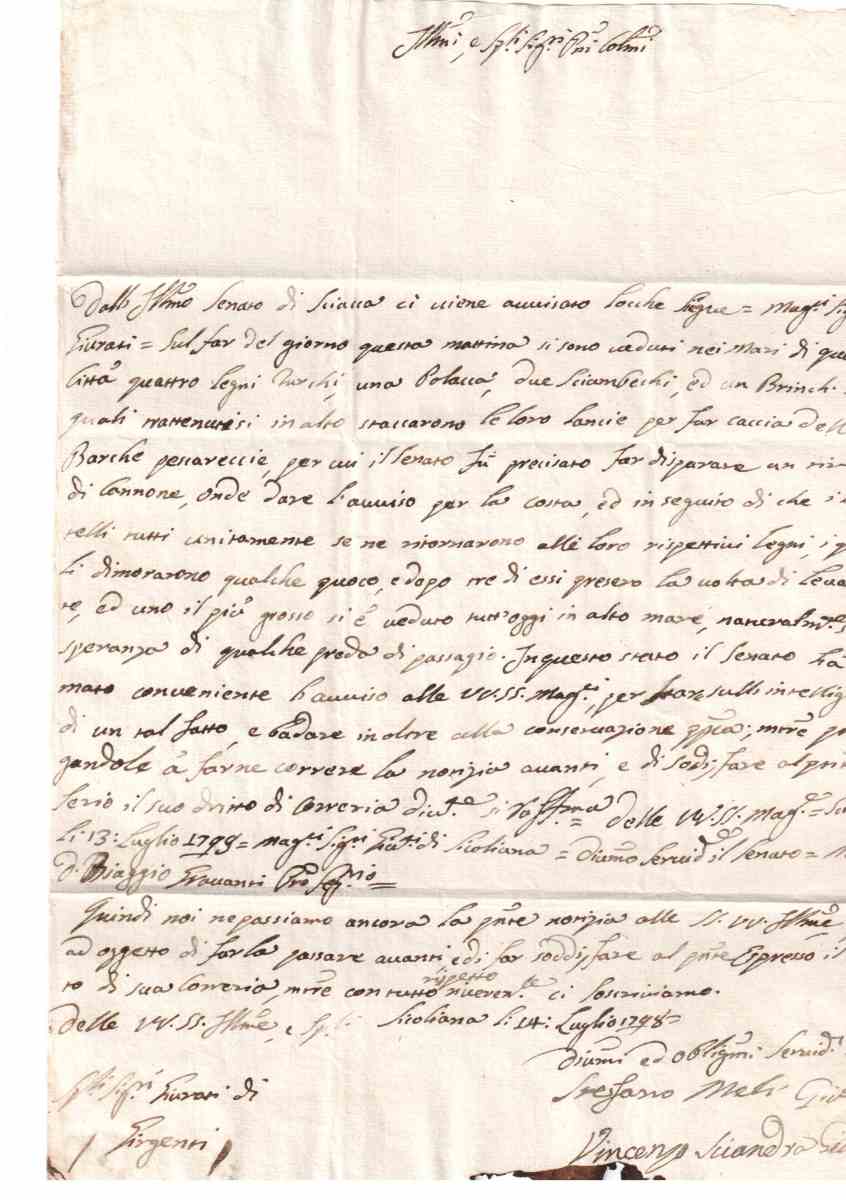 Illmi, e Spli Sigri Pni Colmi
Dall Illmo Senato di Sciacca ci viene avvisato locche siegue = Magci Sig
Giurati = Sul far del giorno questa mattina si sono veduti nei Mari di que
Città quattro legni Turchi, una Polacca, due Sciambechi, ed un Brinch.
quali trattenutisi in alto staccarono le loro lancie per far caccia dell
Barche pescareccie, per cui il Senato fù precisato far disparare un
di Cannone, onde dare l'avviso per la costa, ed in seguito di che i
telli tutti unitamente se ne ritornarono alli loro rispettivi legni, i q
li dimorarono qualche puoco, e dopo tre di essi presero la volta di Leva
te, ed uno il più grosso si è veduto tutt'oggi in alto mare, naturalmte
speranza di qualche preda di passagio. In questo stato il Senato hà
mato conveniente l'avviso alle VV. SS. Magci, per star sull'intellig
di un tal fatto, e badare in oltre alla conservazione ppca; mtre p
gandole à farne correre la notizia avanti, e di sodisfare al pnte
serio il suo dritto di Correria si raffma = delle VV. SS. Mage = Sci
li 13: Luglio 1798 = Magci Sigri Giuti di Siculiana = Divmo Servide il Senato =
D. Biaggio Travanti Pro Segrio =
Quindi noi ne passiamo ancora la pnte notizia alle SS. VV. Illme
ad oggetto di farla passare avanti e di far soddisfare al pnte Espresso il
to di sua Correria, mtre con tutto rispetto riverente ci soscriviamo.
Delle VV. SS. Illme, e Spli Siculiana li 14: Luglio 1798 =
Divmi ed Obligmi Servidi
Spli Sigri Giurati di
Stefano Meli Giu
Girgenti
Vincenzo Sciandra Giu